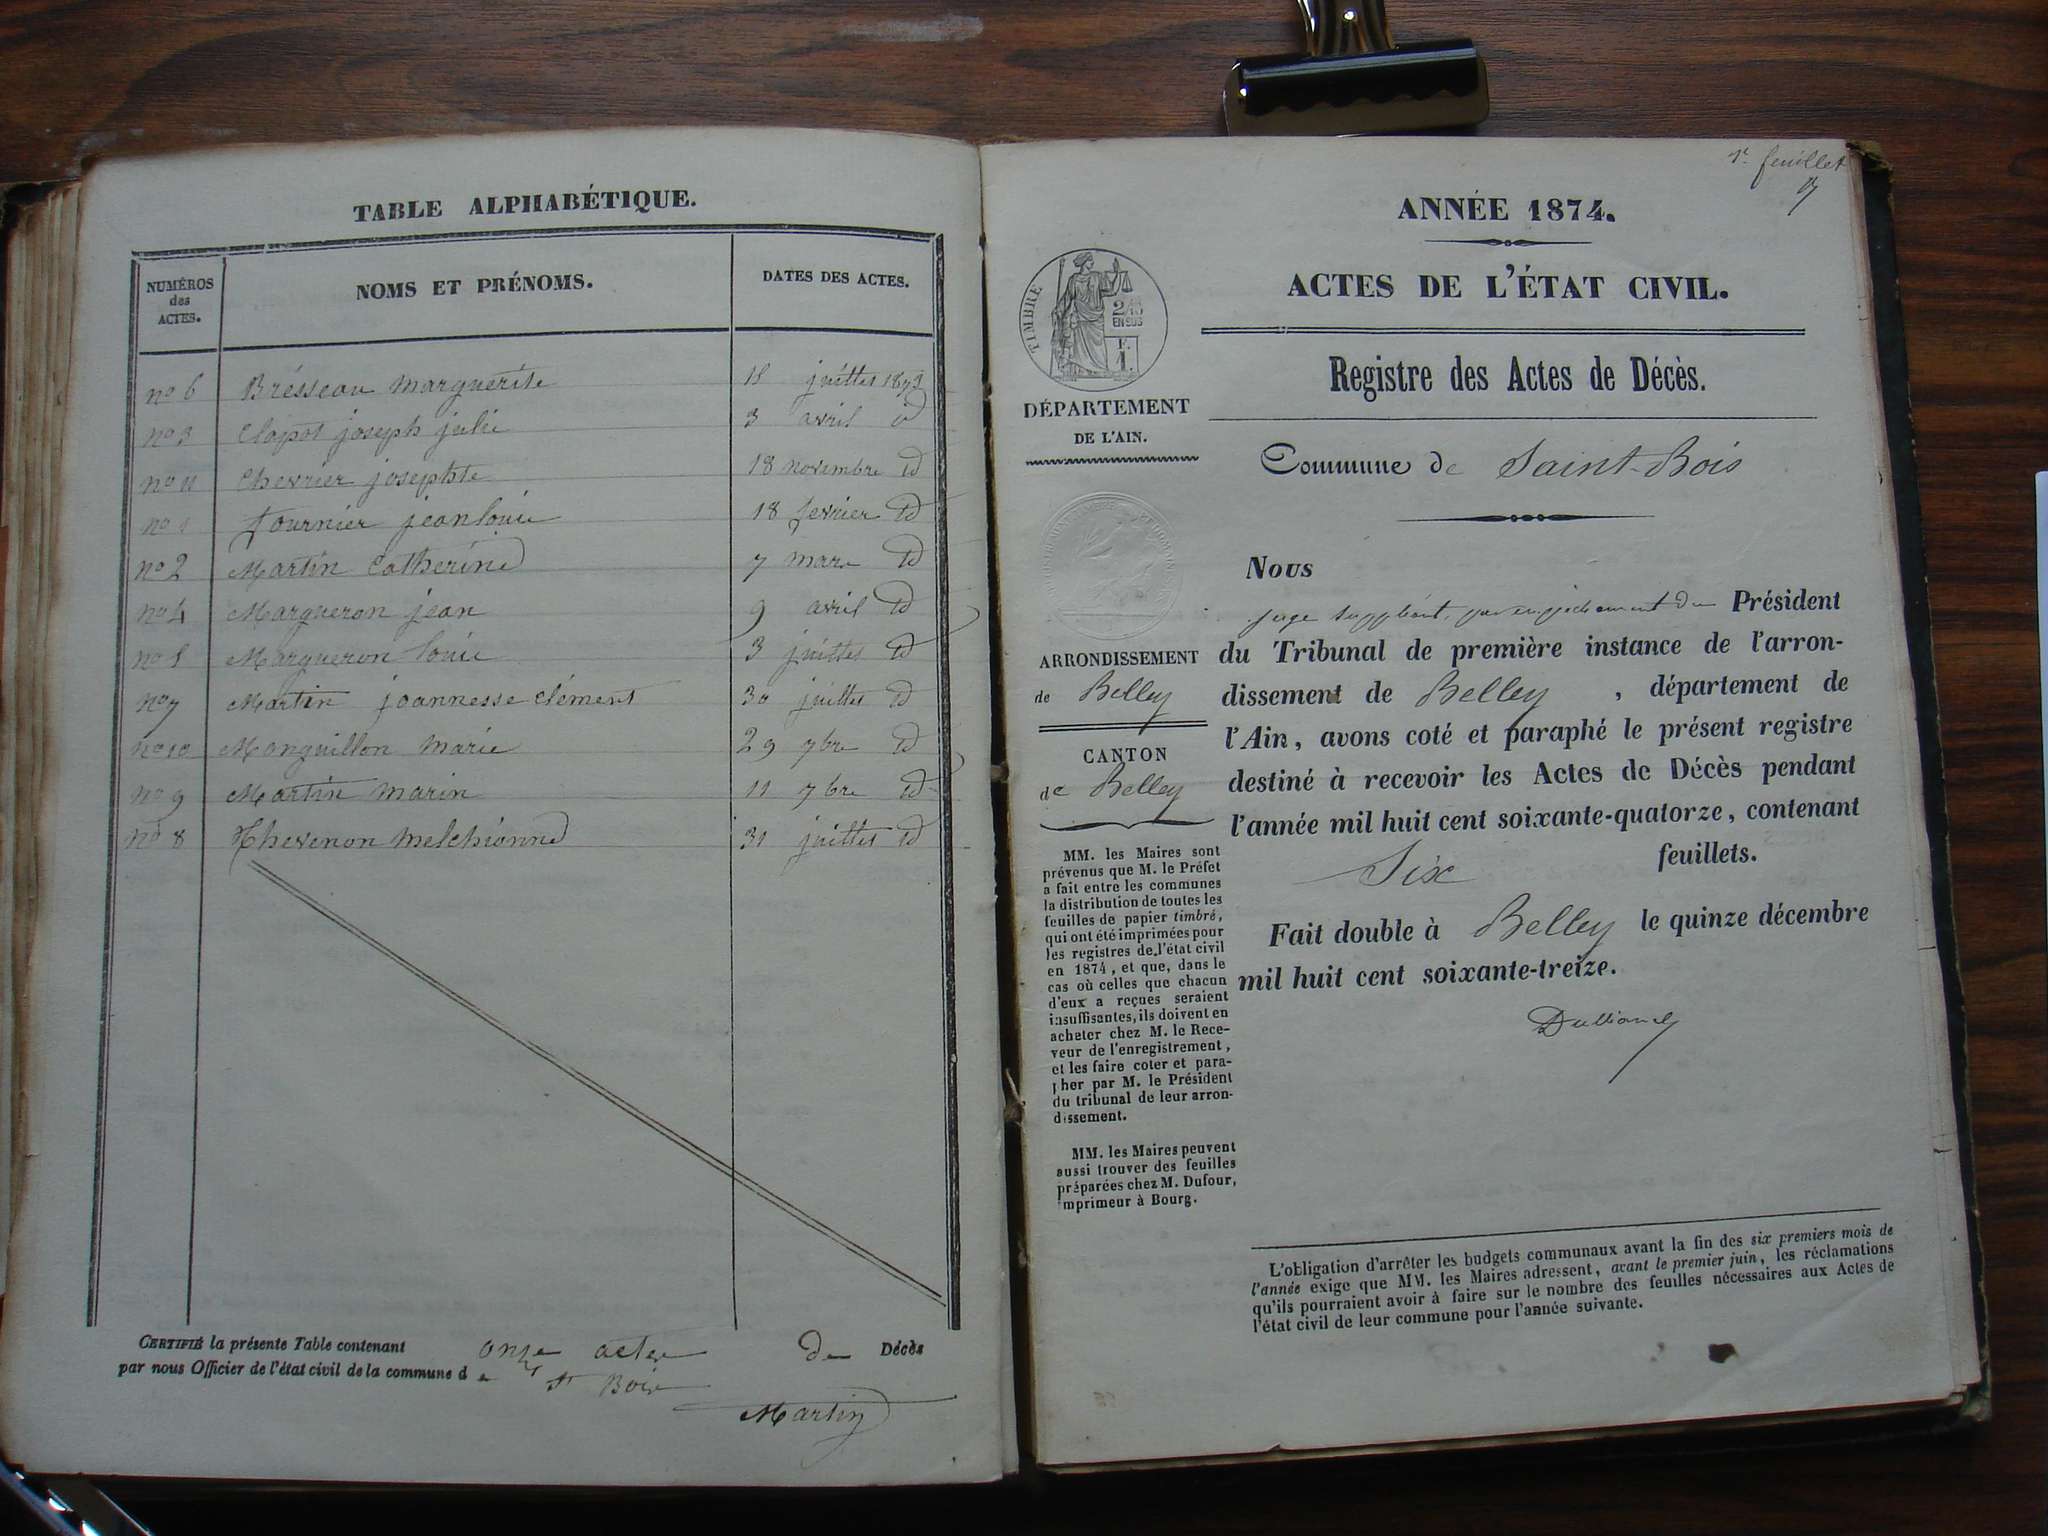 TABLE ALPHABÉTIQUE.
NUMÉROS des ACTES. NOMS ET PRÉNOMS. DATES DES ACTES.
nº 6 Brésseau marguerite 18 juillet 1873
nº 3 Clapot joseph julie 3 avril id
nº 11 Chevrier josephte 18 novembre id
nº 1 fournier jean louis 18 fevrier id
nº 2 Martin Catherine 7 mars id
nº 4 Margueron jean 9 avril id
nº 5 Margueron louis 3 juillet id
nº 7 Martin joannesse clément 30 juillet id
nº 10 Monguillon marie 29 7bre id
nº 9 Martin marin 11 7bre id
nº 8 Thevenon melchionne 31 juillet id
CERTIFIÉ la présente Table contenant onze actes de Décès
par nous Officier de l'état civil de la commune de St Bois
Martin
1r feuillet
ANNÉE 1874.
ACTES DE L'ÉTAT CIVIL.
TIMBRE
2/10
EN SUS
F.
1.
Registre des Actes de Décès.
DÉPARTEMENT
DE L'AIN.
Commune de Saint-Bois
Nous
juge suppléant, par empêchement du Président
du Tribunal de première instance de l'arron-
dissement de Belley, département de
l'Ain, avons coté et paraphé le présent registre
destiné à recevoir les Actes de Décès pendant
l'année mil huit cent soixante-quatorze, contenant
Six feuillets.
Fait double à Belley le quinze décembre
mil huit cent soixante-treize.
ARRONDISSEMENT
de Belley
CANTON
de Belley
MM. les Maires sont
prévenus que M. le Préfet
a fait entre les communes
la distribution de toutes les
feuilles de papier timbré,
qui ont été imprimées pour
les registres de l'état civil
en 1874, et que, dans le
cas où celles que chacun
d'eux a reçues seraient
insuffisantes, ils doivent en
acheter chez M. le Rece-
veur de l'enregistrement,
et les faire coter et para-
pher par M. le Président
du tribunal de leur arron-
dissement.
MM. les Maires peuvent
aussi trouver des feuilles
préparées chez M. Dufour,
imprimeur à Bourg.
L'obligation d'arrêter les budgets communaux avant la fin des six premiers mois de
l'année exige que MM. les Maires adressent, avant le premier juin, les réclamations
qu'ils pourraient avoir à faire sur le nombre des feuilles nécessaires aux Actes de
l'état civil de leur commune pour l'année suivante.